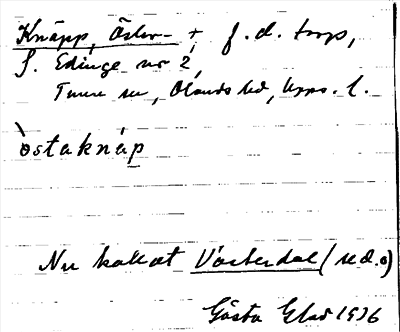 Knäpp, Öster- +, f. d. torp,
f. Edinge nr 2,
Tuna sn, Olands hd, Upps. l.
òstaknáp
Nu kallat Västerdal (se d. o)
Gösta Elad 1936